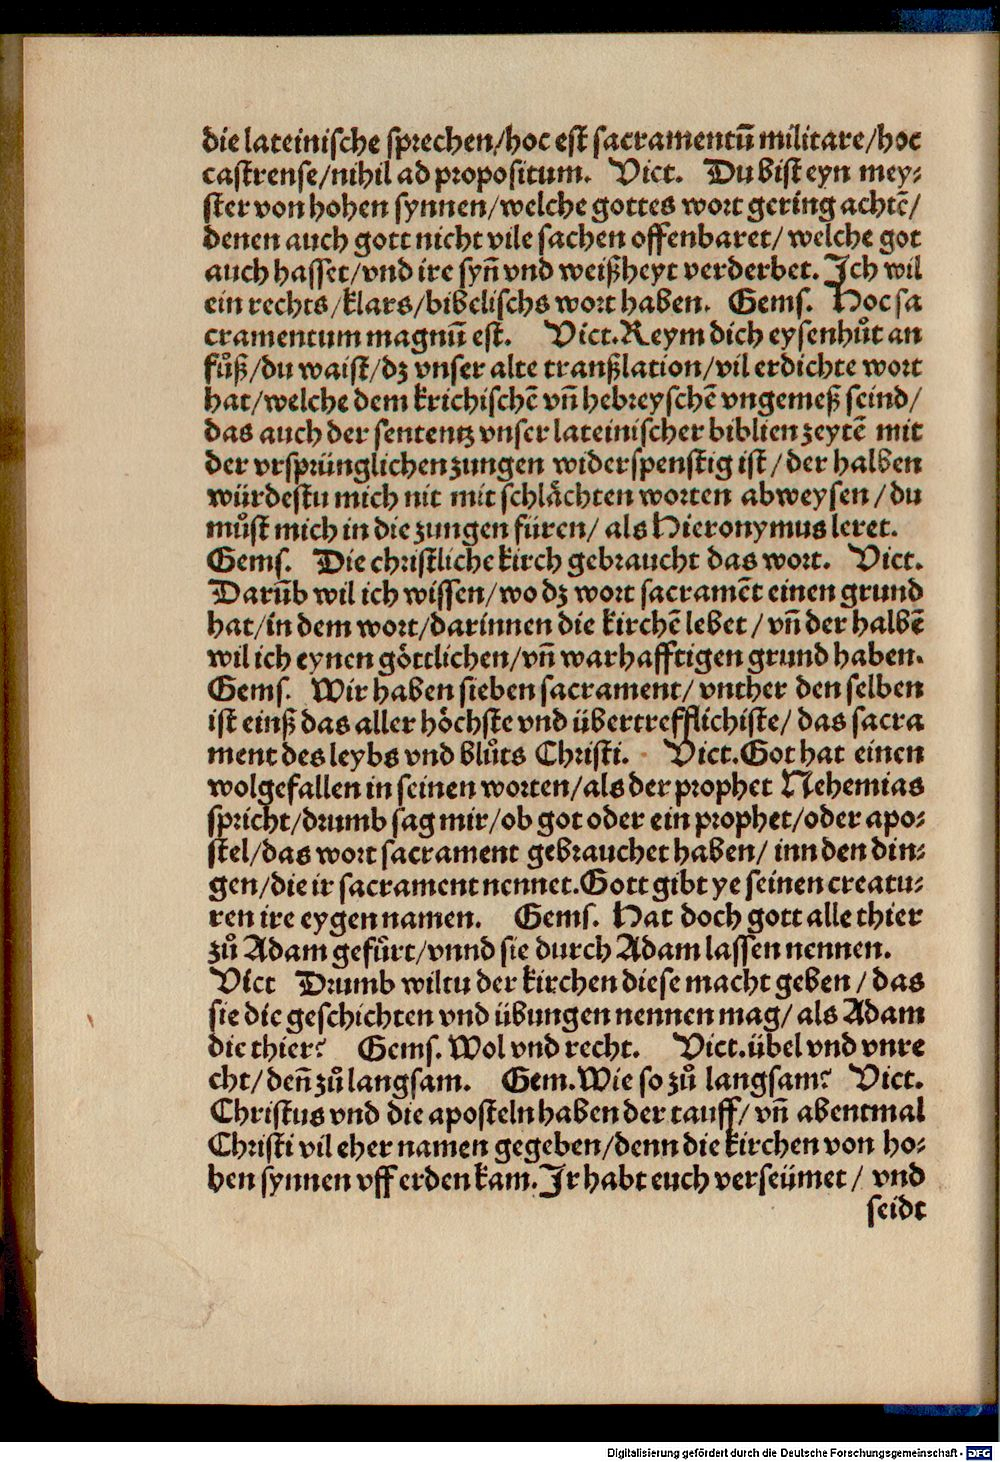 die lateinische sprechen/hoc est sacramentū militare/hoc
castrense/nihil ad propositum. Vict. Du bist eyn mey⸗
ster von hohen synnen/welche gottes wort gering achtē/
denen auch gott nicht vile sachen offenbaret/ welche got
auch hasset/vnd ire syn̄ vnd weißheyt verderbet. Ich wil
ein rechts/klars/bibelischs wort haben. Gems. Hoc sa
cramentum magnū est. Vict. Reym dich eysenhůt an
fůß/du waist/dz vnser alte tranßlation/vil erdichte wort
hat/welche dem krichischē vn̄ hebreyschē vngemeß seind/
das auch der sententz vnser lateinischer biblien zeytē mit
der vrsprünglichen zungen widerspenstig ist/der halben
würdestu mich nit mit schlächten worten abweysen/du
můst mich in die zungen füren/ als Hieronymus leret.
Gems. Die christliche kirch gebraucht das wort. Vict.
Darūb wil ich wissen/wo dz wort sacramēt einen grund
hat/in dem wort/darinnen die kirchē lebet/vn̄ der halbē
wil ich eynen göttlichen/vn̄ warhafftigen grund haben.
Gems. Wir haben sieben sacrament/vnther den selben
ist einß das aller höchste vnd übertrefflichiste/das sacra
ment des leybs vnd blůts Christi. Vict. Got hat einen
wolgefallen in seinen worten/als der prophet Nehemias
spricht/drumb sag mir/ob got oder ein prophet/oder apo⸗
stel/das wort sacrament gebrauchet haben/ inn den din⸗
gen/die ir sacrament nennet. Gott gibt ye seinen creatu⸗
ren ire eygen namen. Gems. Hat doch gott alle thier
zů Adam gefürt/vnnd sie durch Adam lassen nennen.
Vict Drumb wiltu der kirchen diese macht geben/das
sie die geschichten vnd übungen nennen mag/ als Adam
die thier? Gems. Wol vnd recht. Vict. übel vnd vnre
cht/den̄ zů langsam. Gem. Wie so zů langsam? Vict.
Christus vnd die aposteln haben der tauff/vn̄ abentmal
Christi vil eher namen gegeben/denn die kirchen von ho⸗
hen synnen vff erden kam. Ir habt euch verseümet/ vnd
seidt
Digitalisierung gefördert durch die Deutsche Forschungsgemeinschaft - DFG